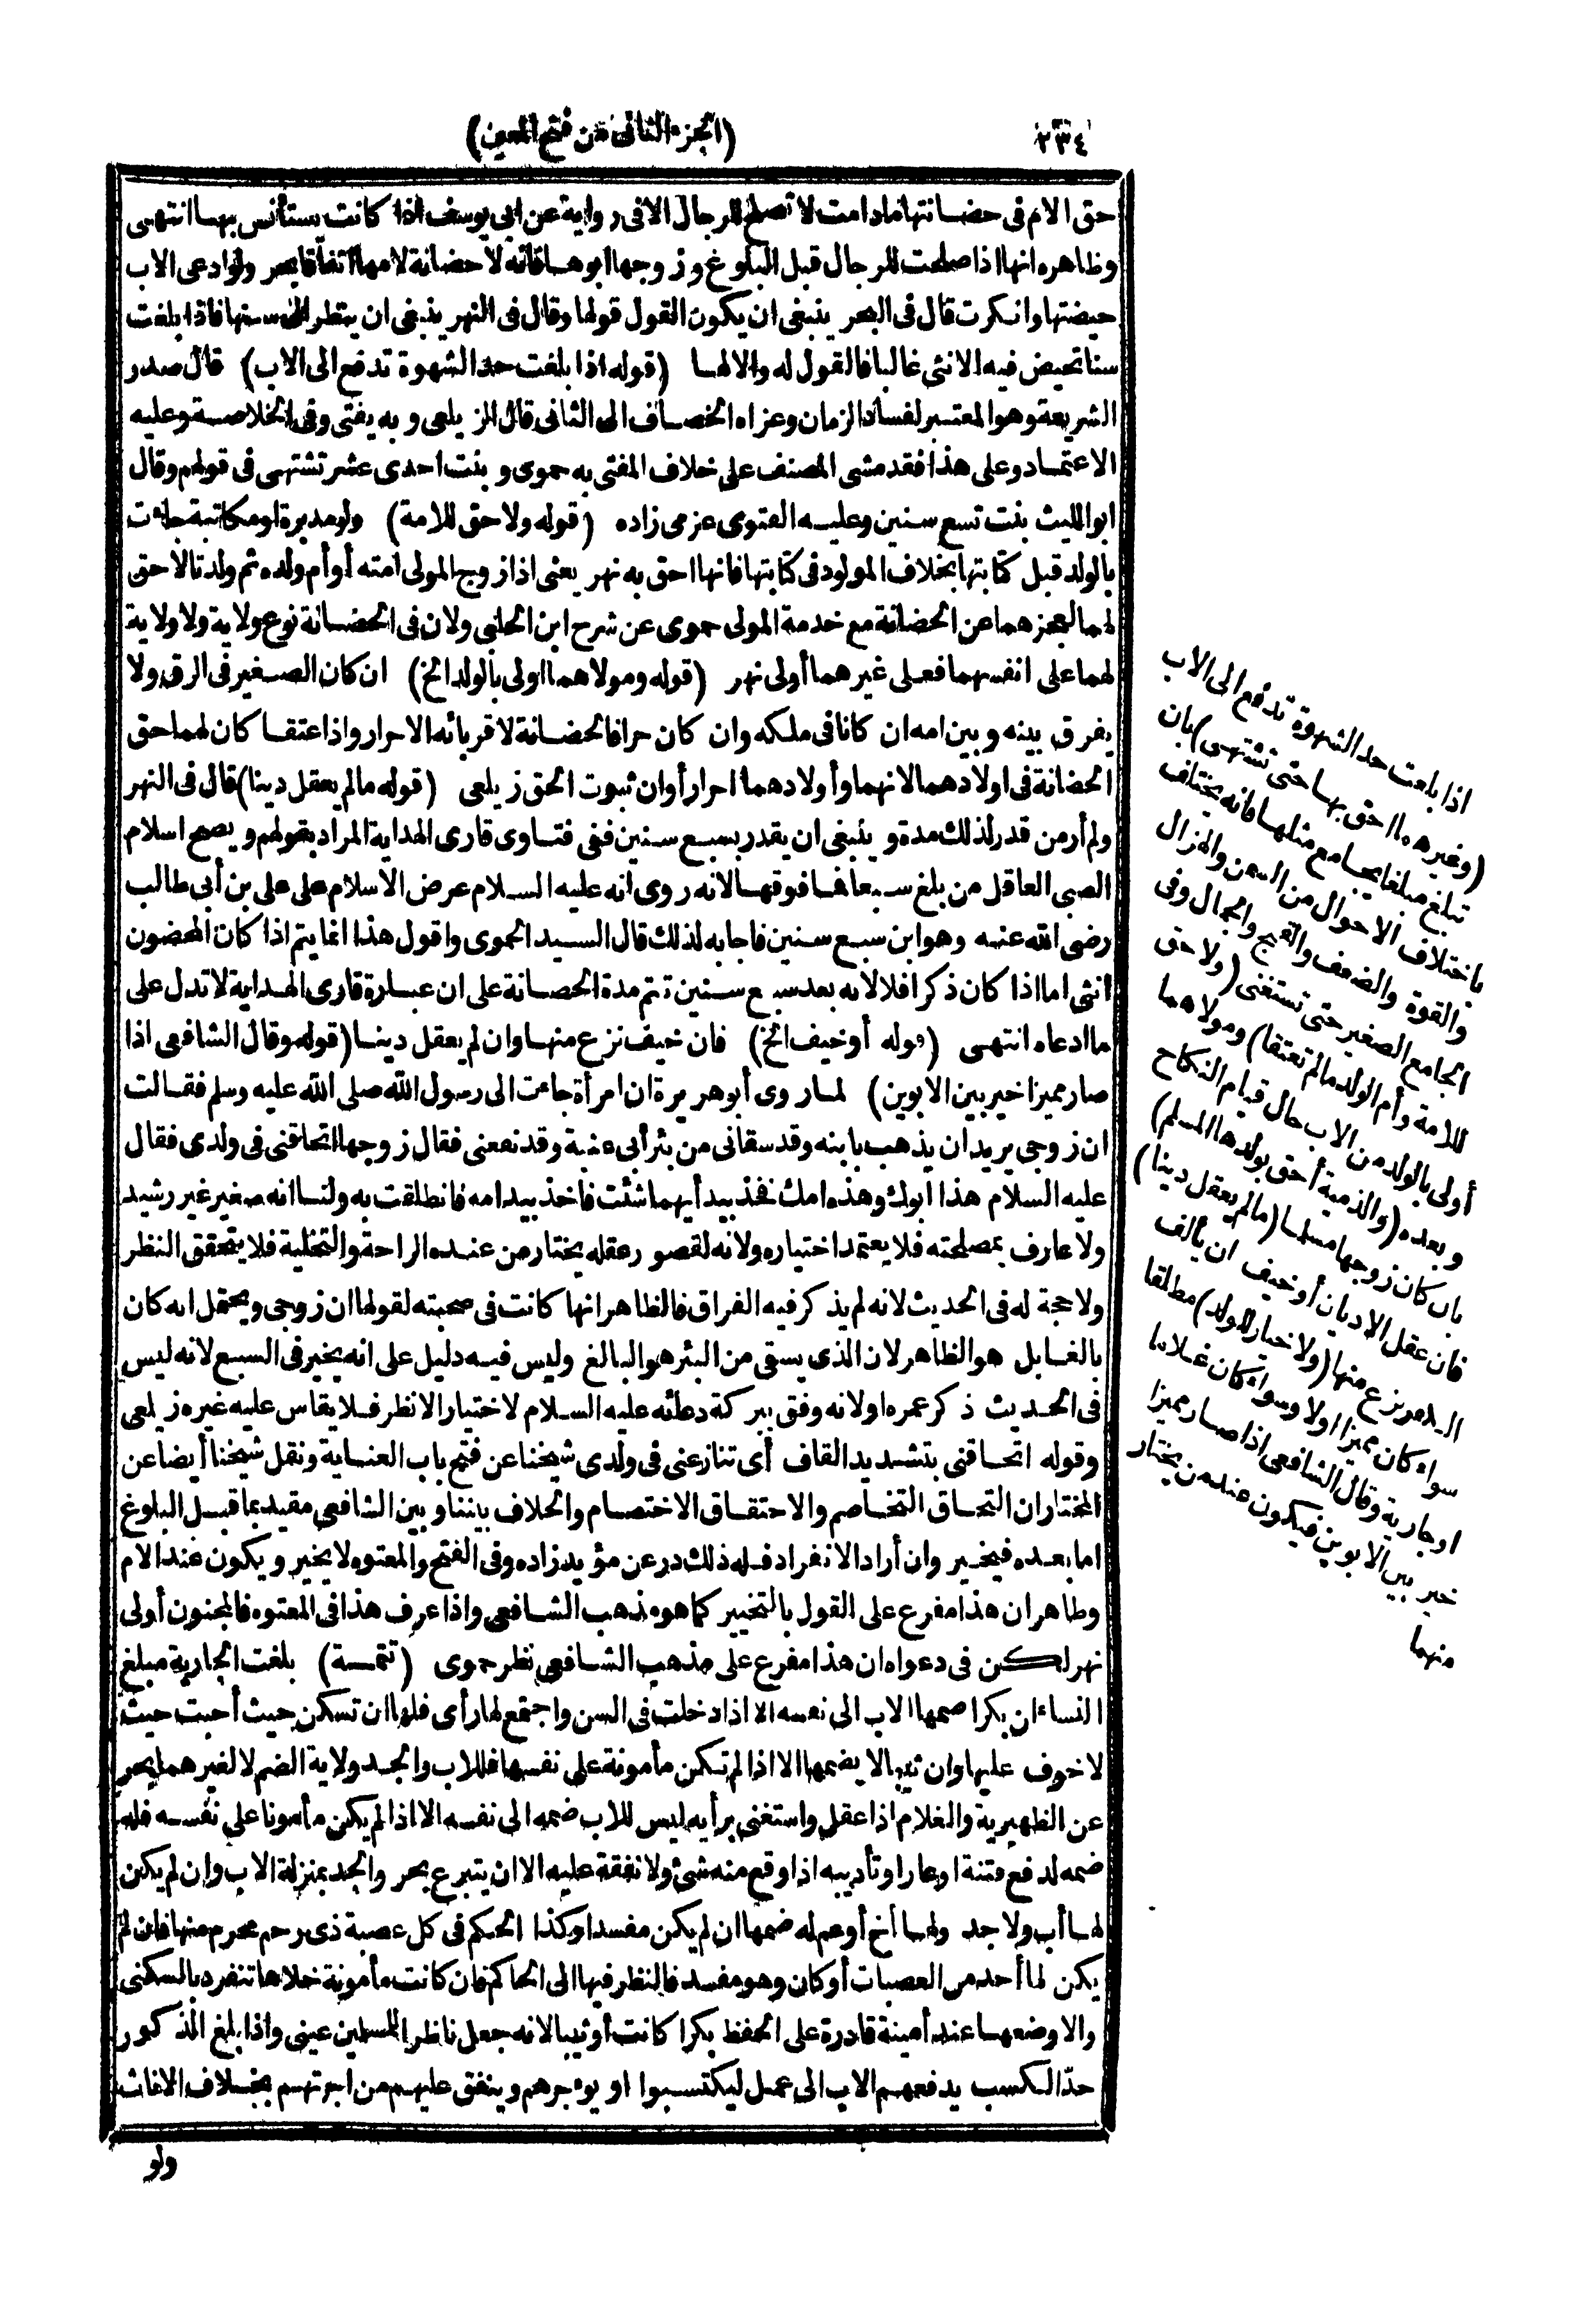 ٢٣٤
(الجزء الثانى من فتح المعين)
حق الام فى حضانتها مادامت لا تصلح للرجال الا فى رواية عن ابى يوسف اذا كانت يستأنس بها انتهى
وظاهره انها اذا صلحت للرجال قبل البلوغ وزوجها ابوها فانه لا حضانة لامها اتفاقا بحر ولو ادعى الاب
حيضتها وانكرت قال فى البحر ينبغى ان يكون القول قولها وقال فى النهر ينبغى ان ينظر الى سنها فاذا بلغت
سنا تحيض فيه الانثى غالبا فالقول له والا لها (قوله اذا بلغت حد الشهوة تدفع الى الاب) قال صدر
الشريعة وهو المعتبر لفساد الزمان وعزاه الخصاف الى الثانى قال الزيلعى وبه يفتى وفى الخلاصة وعليه
الاعتماد وعلى هذا فقد مشى المصنف على خلاف المفتى به حموى وبنت احدى عشر تشتهى فى قولهم وقال
ابو الليث بنت تسع سنين وعليه الفتوى عزمى زاده (قوله ولا حق للامة) ولو مدبرة او مكاتبة جاءت
بالولد قبل كتابتها بخلاف المولود فى كتابتها فانها احق به نهر يعنى اذا زوج المولى امته أو أم ولده ثم ولدتا لا حق
لهما لعجزهما عن الحضانة مع خدمة المولى حموى عن شرح ابن الحلبى ولان فى الحضانة نوع ولاية ولا ولاية
لهما على انفسهما فعلى غيرهما أولى نهر (قوله ومولاهما اولى بالولد الخ) ان كان الصغير فى الرق ولا
يفرق بينه وبين امه ان كانا فى ملكه وان كان حرا فالحضانة لاقربائه الاحرار واذا عتقا كان لهما حق
الحضانة فى اولادهما لانهما وأولادهما احرار أوان ثبوت الحق زيلعى (قوله مالم يعقل دينا) قال فى النهر
ولم أر من قدر لذلك مدة وينبغى ان يقدر بسبع سنين ففى فتاوى قارى الهداية المراد بقولهم ويصح اسلام
الصبى العاقل من بلغ سبعا فما فوقها لانه روى انه عليه السلام عرض الاسلام على على بن أبى طالب
رضى الله عنه وهو ابن سبع سنين فاجابه لذلك قال السيد الحموى واقول هذا انما يتم اذا كان المحضون
انثى اما اذا كان ذكرا فلا لانه بعد سبع سنين تتم مدة الحضانة على ان عبارة قارى الهداية لا تدل على
ما ادعاه انتهى (قوله أو خيف الخ) فان خيف نزع منها وان لم يعقل دينا (قوله وقال الشافعى اذا
صار مميزا خير بين الابوين) لما روى أبو هريرة ان امرأة جاءت الى رسول الله صلى الله عليه وسلم فقالت
ان زوجى يريد ان يذهب بابنه وقد سقانى من بئر أبى عنبة وقد نفعنى فقال زوجها اتحاقنى فى ولدى فقال
عليه السلام هذا ابوك وهذه امك فخذ بيد أيهما شئت فاخذ بيد امه فانطلقت به ولنا انه صغير غير رشيد
ولا عارف بمصلحته فلا يعتمد اختياره ولانه لقصور عقله يختار من عنده الراحة والتخلية فلا يتحقق النظر
ولا حجة له فى الحديث لانه لم يذكر فيه الفراق فالظاهر انها كانت فى صحبته لقولها ان زوجى ويحتمل انه كان
بالغا بل هو الظاهر لان الذى يسقى من البئر هو البالغ وليس فيه دليل على انه يخير فى السبع لانه ليس
فى الحديث ذكر عمره او لانه وفق ببركة دعائه عليه السلام لاختيار الانظر فلا يقاس عليه غيره زيلعى
وقوله اتحاقنى بتشديد القاف أى تنازعنى فى ولدى شيخنا عن فتح باب العناية ونقل شيخنا أيضا عن
المختار ان التحاق التخاصم والاحتقاق الاختصام والخلاف بيننا وبين الشافعى مقيد بما قبل البلوغ
اما بعده فيخير وان أراد الانفراد فله ذلك در عن مؤيد زاده وفى الفتح والمعتوه لا يخير ويكون عند الام
وظاهر ان هذا مفرع على القول بالتخيير كما هو مذهب الشافعى واذا عرف هذا فى المعتوه فالمجنون أولى
نهر لكن فى دعواه ان هذا مفرع على مذهب الشافعى نظر حموى (تتمة) بلغت الجارية مبلغ
النساء ان بكرا ضمها الاب الى نفسه الا اذا دخلت فى السن واجتمع لها رأى فلها ان تسكن حيث أحبت حيث
لا خوف عليها وان ثيبا لا يضمها الا اذا لم تكن مأمونة على نفسها فللاب والجد ولاية الضم لا لغيرهما بحر
عن الظهيرية والغلام اذا عقل واستغنى برأيه ليس للاب ضمه الى نفسه الا اذا لم يكن مأمونا على نفسه فله
ضمه لدفع فتنة او عار او تأديبه اذا وقع منه شئ ولا نفقة عليه الا ان يتبرع بحر والجد بمنزلة الاب وان لم يكن
لها أب ولا جد ولها أخ أو عم له ضمها ان لم يكن مفسدا وكذا الحكم فى كل عصبة ذى رحم محرم منها فان لم
يكن لها أحد من العصبات أو كان وهو مفسد فالنظر فيها الى الحاكم فان كانت مأمونة خلاها تنفرد بالسكنى
والا وضعها عند أمينة قادرة على الحفظ بكرا كانت أو ثيبا لانه جعل ناظرا للمسلمين عينى واذا بلغ الذكور
حد الكسب يدفعهم الاب الى عمل ليكتسبوا او يؤجرهم وينفق عليهم من اجرتهم بخلاف الاناث
ولو
اذا بلغت حد الشهوة تدفع الى الاب
(وغيرهما احق بها حتى تشتهى) بان
تبلغ مبلغا يجامع مثلها فانه يختلف
باختلاف الاحوال من السمن والهزال
والقوة والضعف والقبح والجمال وفى
الجامع الصغير حتى تستغنى (ولا حق
للامة وأم الولد مالم تعتقا) ومولاهما
أولى بالولد من الاب حال قيام النكاح
وبعده (والذمية أحق بولدها المسلم)
بان كان زوجها مسلما (مالم يعقل دينا)
فان عقل الاديان أو خيف ان يألف
الكفر نزع منها (ولا خيار للولد) مطلقا
سواء كان مميزا اولا وسواء كان غلاما
او جارية وقال الشافعى اذا صار مميزا
خير بين الابوين فيكون عند من يختار
منهما